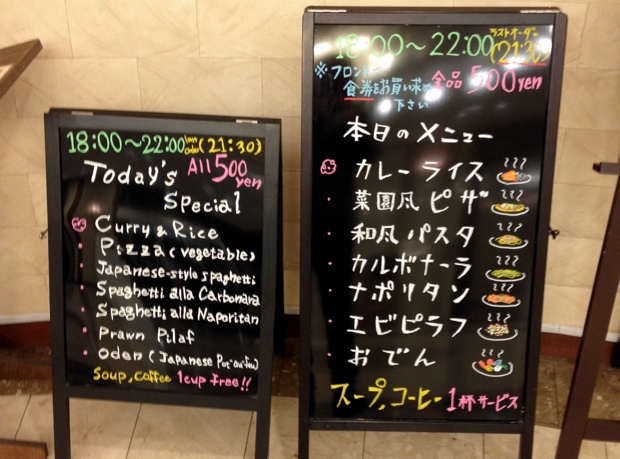 18:00～22:00 Last Order (21:30)
Today's All 500 yen
Special
Curry & Rice
Pizza (vegetable)
Japanese-style spaghetti
Spaghetti alla Carbonara
Spaghetti alla Naporitan
Prawn Pilaf
oden (Japanese Pot-au-feu)
Soup, coffee 1cup free!!
18:00～22:00 ラストオーダー (21:30)
※フロントで
食券をお買い求め
下さい
全品500yen
本日のメニュー
カレーライス
菜園風ピザ
和風パスタ
カルボナーラ
ナポリタン
エビピラフ
おでん
スープ,コーヒー1杯サービス